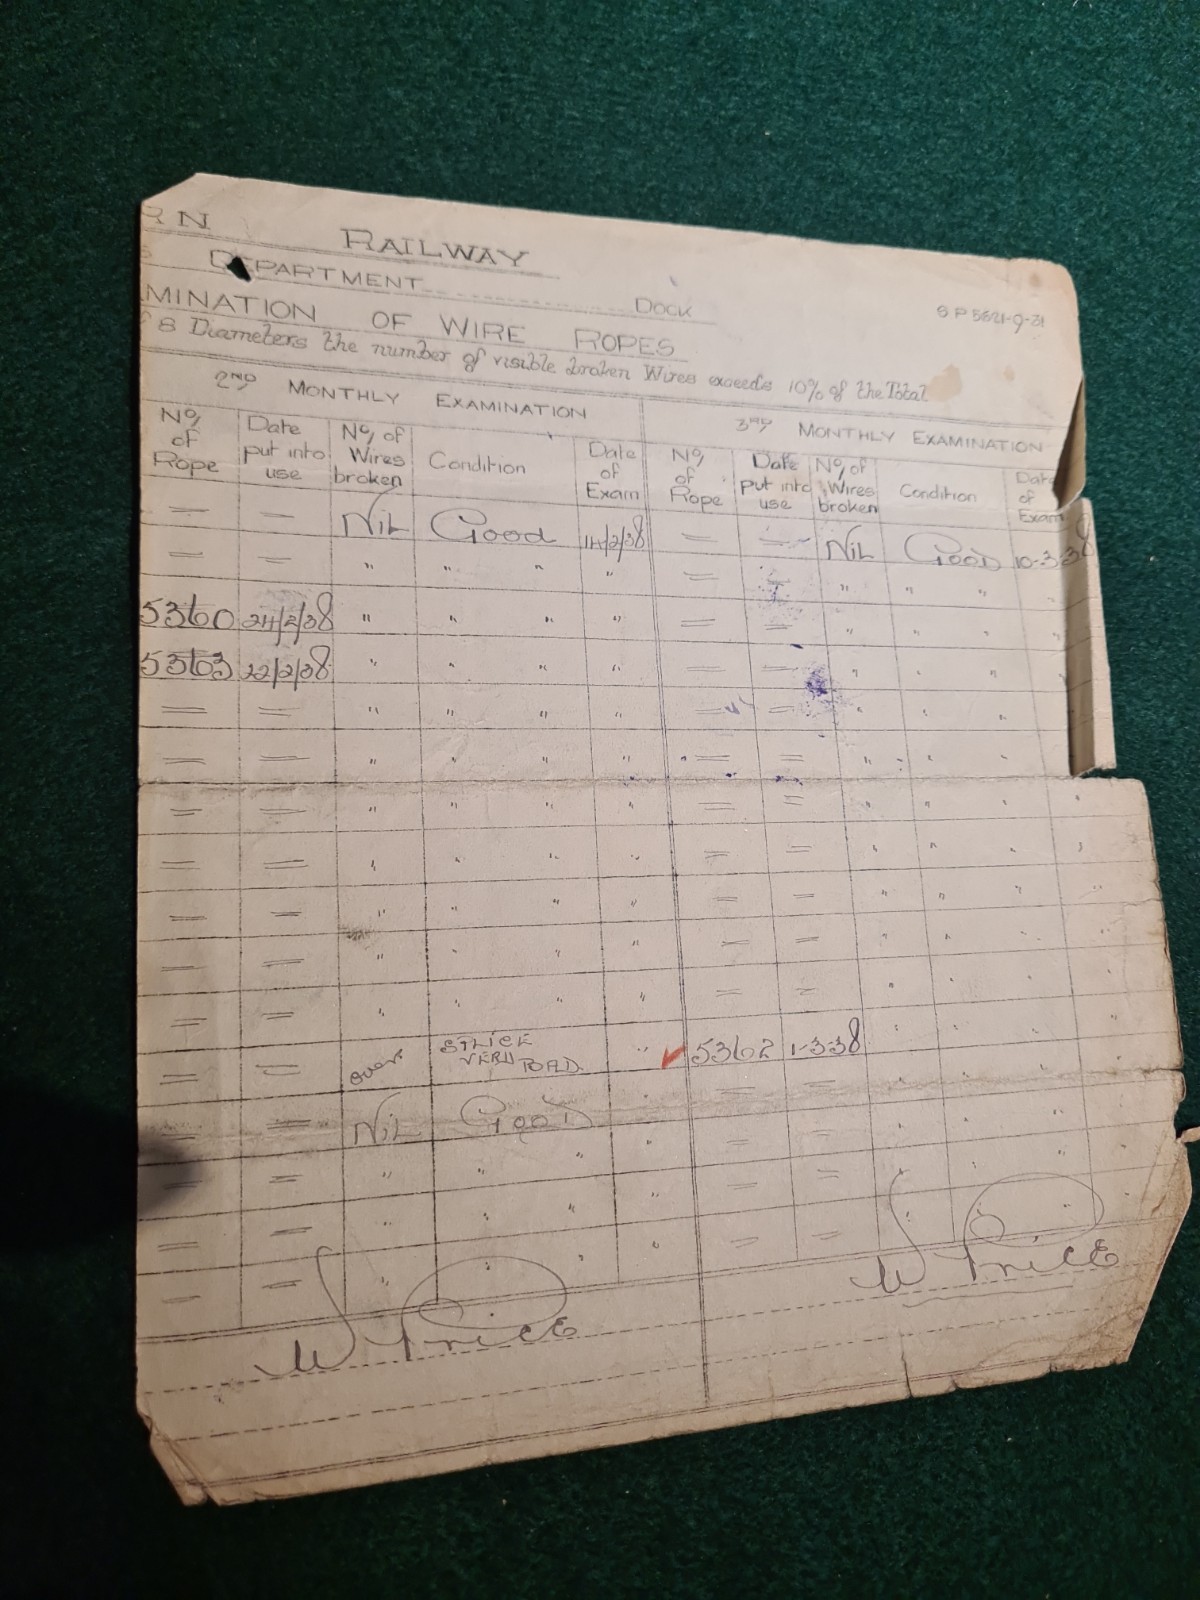 RN RAILWAY
S DEPARTMENT DOCK
S P 5621-9-31
MINATION OF WIRE ROPES
8 Diameters the number of visible broken Wires exceeds 10% of the Total
2ND MONTHLY EXAMINATION 3RD MONTHLY EXAMINATION
No/ of Rope Date put into use No/ of Wires broken Condition Date of Exam No/ of Rope Date put into use No/ of Wires broken Condition Date of Exam
= = Nil Good 14/2/38 = = Nil Good 10-3-38
= = " " " " = = " " "
5360 24/2/38 " " " " = = " " " "
5363 22/2/38 " " " " = = " " " "
= = " " " " = = " " " "
= = " " " " = = " " "
= = " " " " = = " " " "
= = " " " " = = " " " "
= = " " " " = = " " " "
= = " " " = = " " " "
= = " " " " = = " " " "
= = over SPLICE VERY BAD " 5362 1-3-38 " " " "
= = Nil Good " = = " " " "
= = " " " " = = " " " "
= = " " " " = = " " " "
= = " " "
W Price W Price